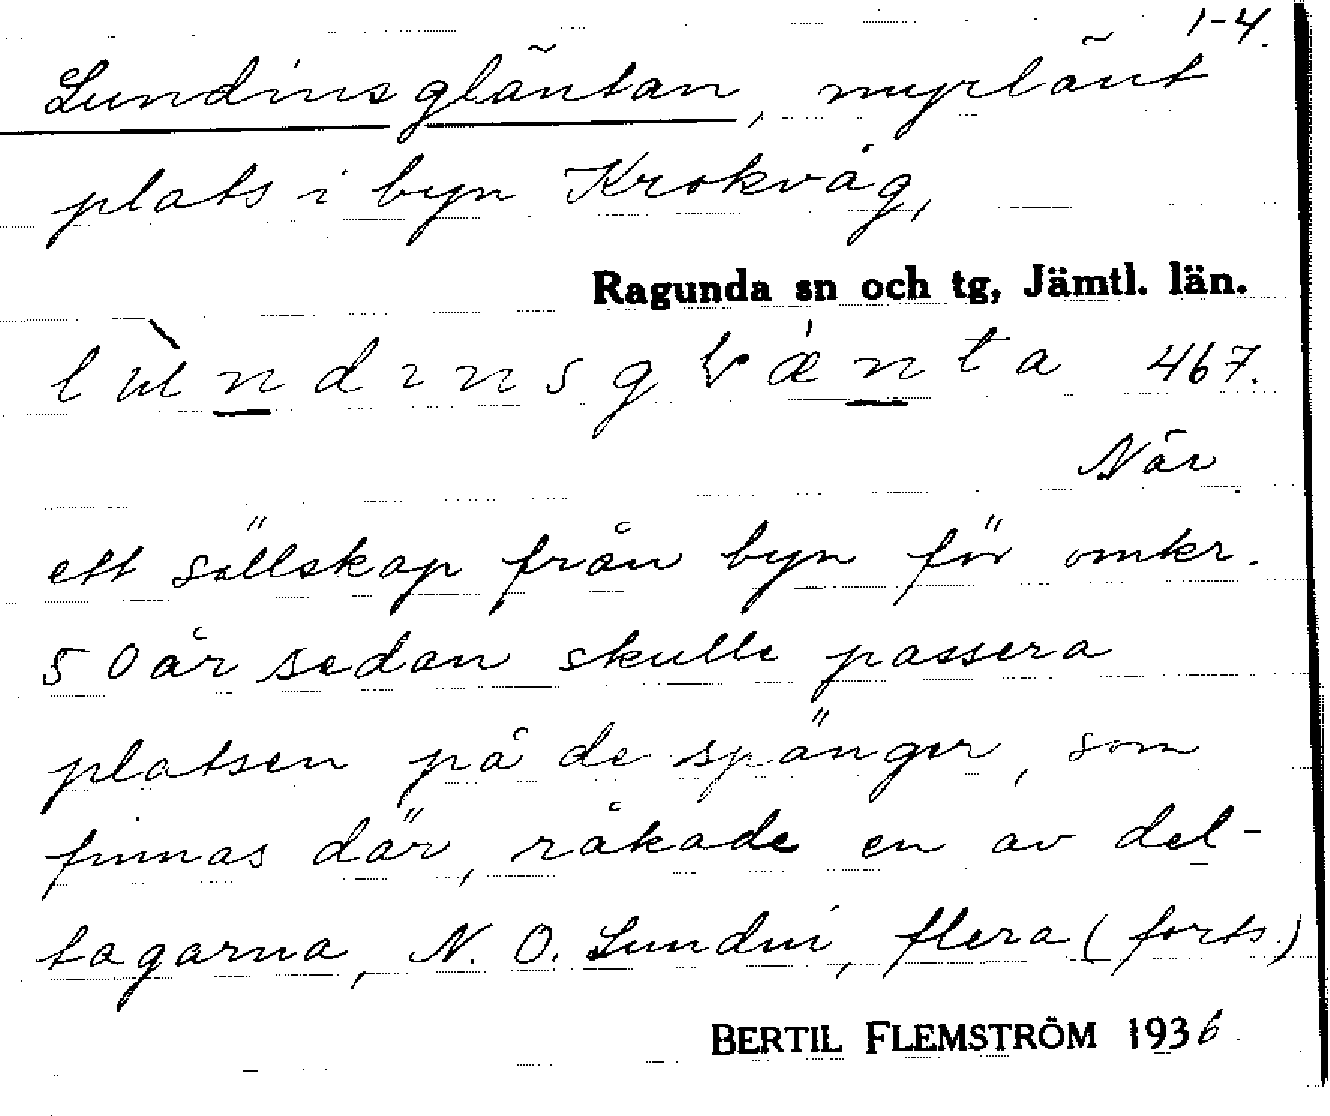 1-4.
Lundinsgläntan, myrlänt
plats i byn Krokvåg,
Ragunda sn och tg, Jämtl. län.
467.
När
ett sällskap från byn för omkr.
50 år sedan skulle passera
platsen på de spänger, som
finnas där, råkade en av del-
tagarna, N. O. Lundin, flera (forts.)
BERTIL FLEMSTRÖM 1936